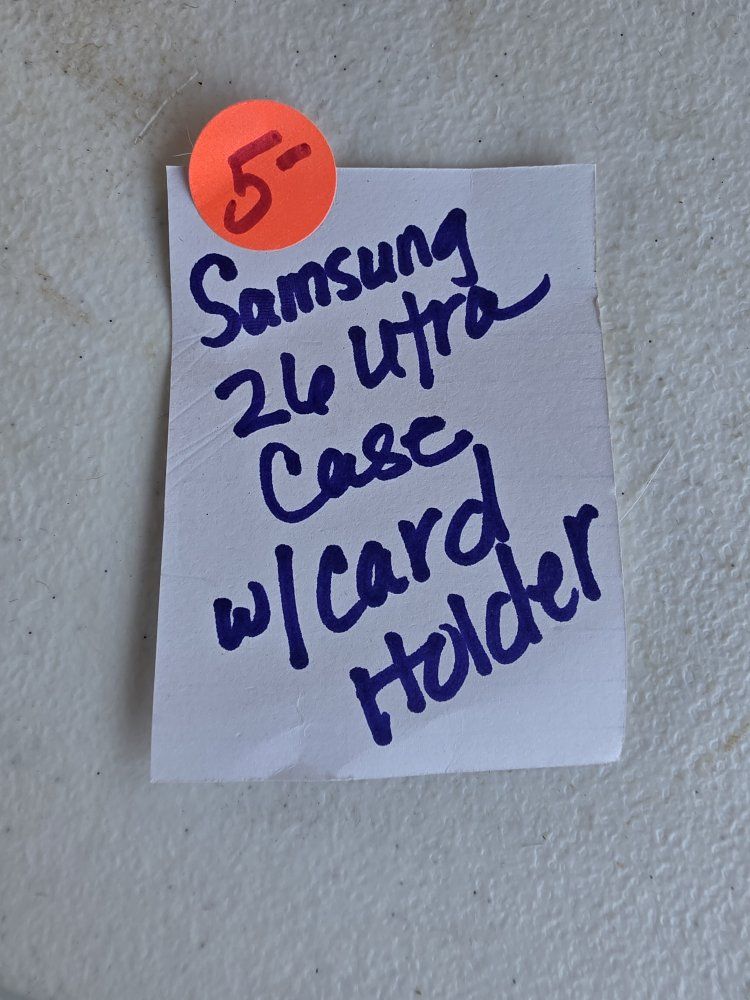 5-
Samsung
26 Utra
Case
w/card
Holder